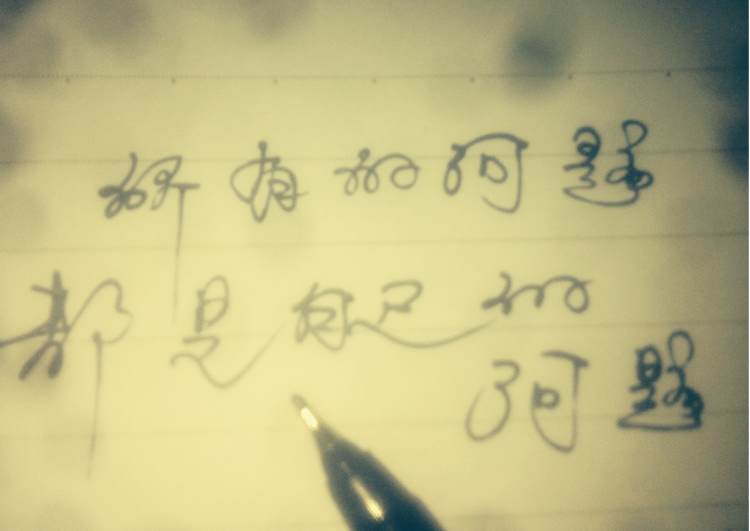 所有的问题
都是自己的
问题